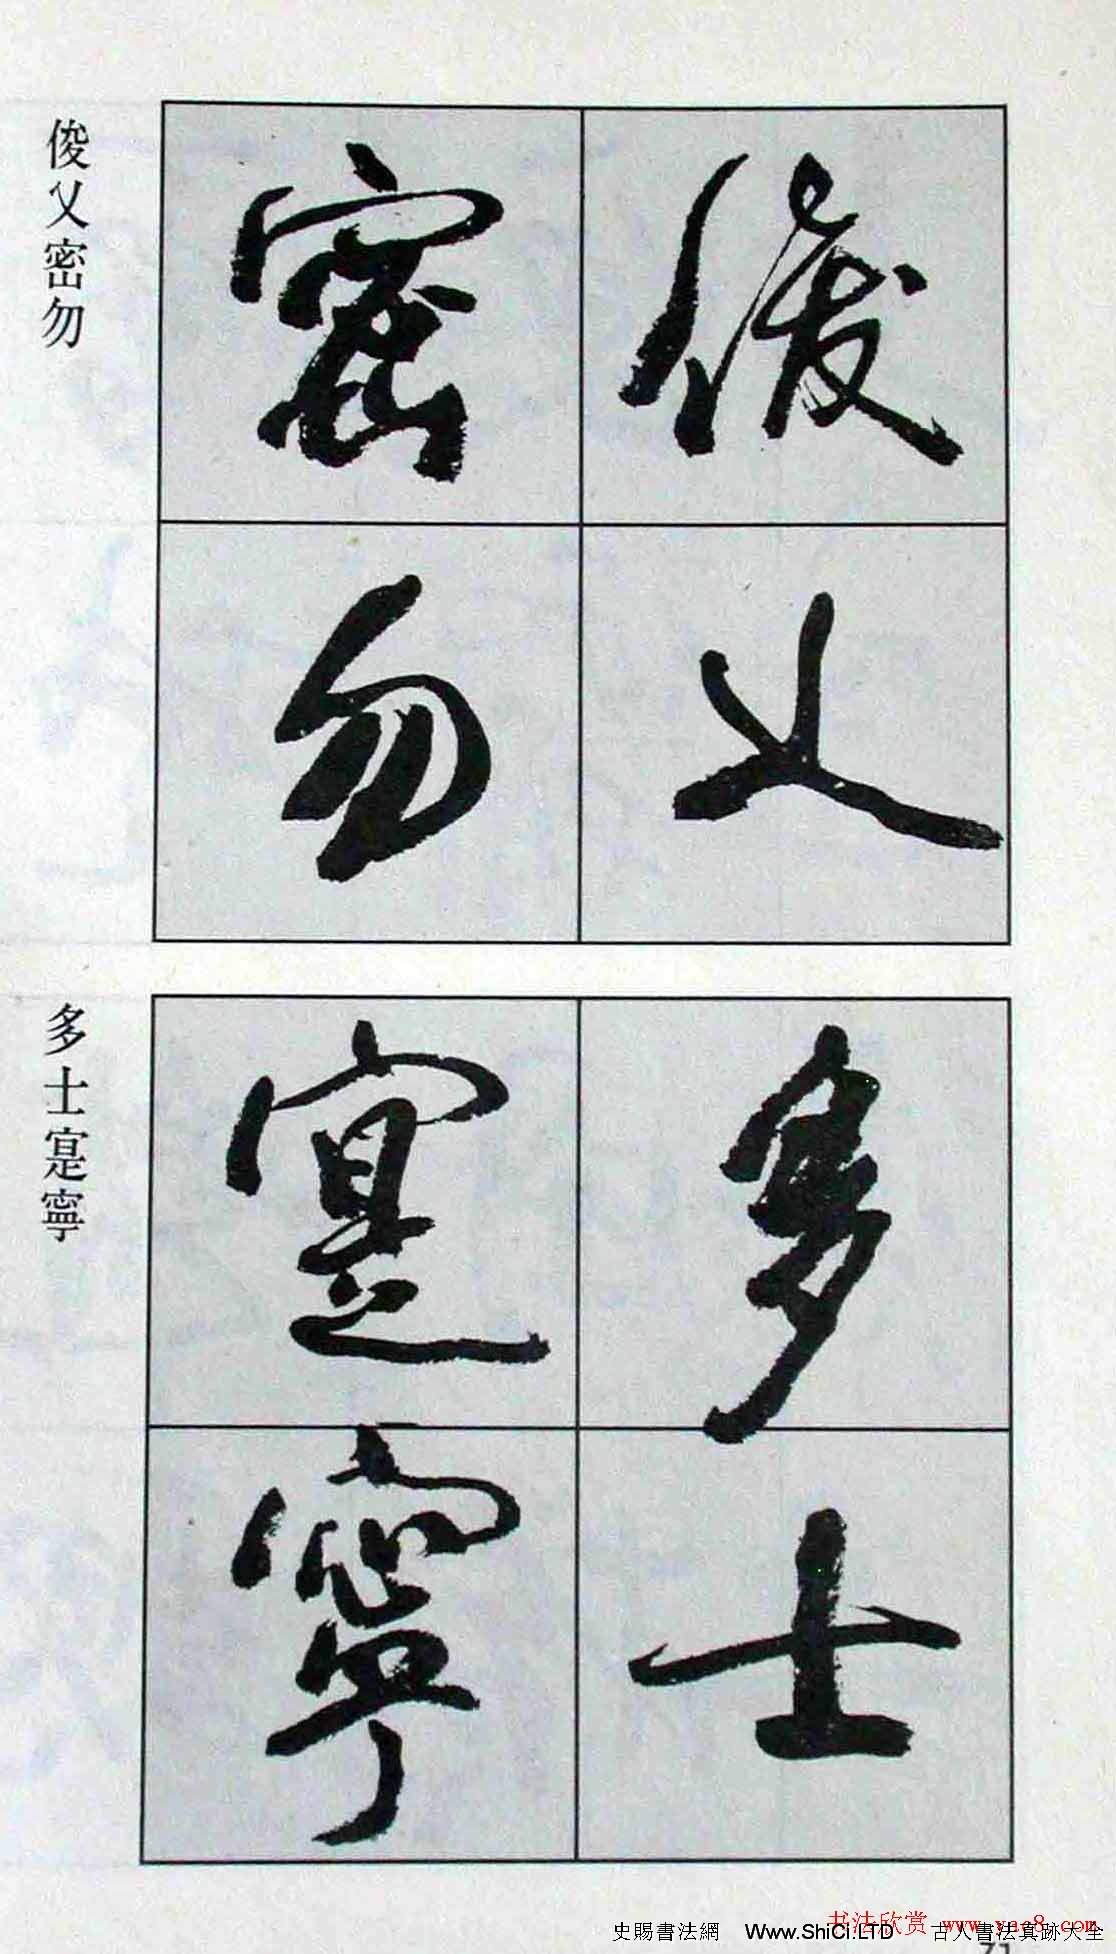 俊乂
密勿
俊乂密勿
多士
寔寧
多士寔寧
书法欣赏 www.yac8.com
史賜書法網 Www.ShiCi.LTD 古人書法真跡大全
71